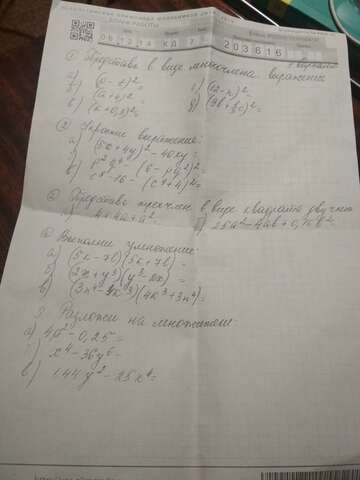 БЛАНК РАБОТЫ
06 12 14 КД 7 203616
1 вариант
① Представь в виде многочлена выражение
а) (p-t)²= г) (12-n)²=
б) (a+b)²= д) (9b+
в) (k+0,3)²=
② Упрости выражение:
а) (5x+4y)²-40xy=
б) p²q⁴-(6-pq²)²=
в) c⁸-16-(c⁴+4)²=
③ Представь трехчлен в виде квадрата двучлена
а) 4+4a+a²= б) 25a²-4ab+0,16b²
④ Выполни умножение:
а) (5k-7b)(5k+7b)=
б) (2x+y³)(y³-2x)=
в) (3n⁴-4k³)(4k³+3n⁴)=
5 Разложи на множители
а) 4a²-0,25=
x⁴-36y⁶=
в) 144y²-25x⁴=